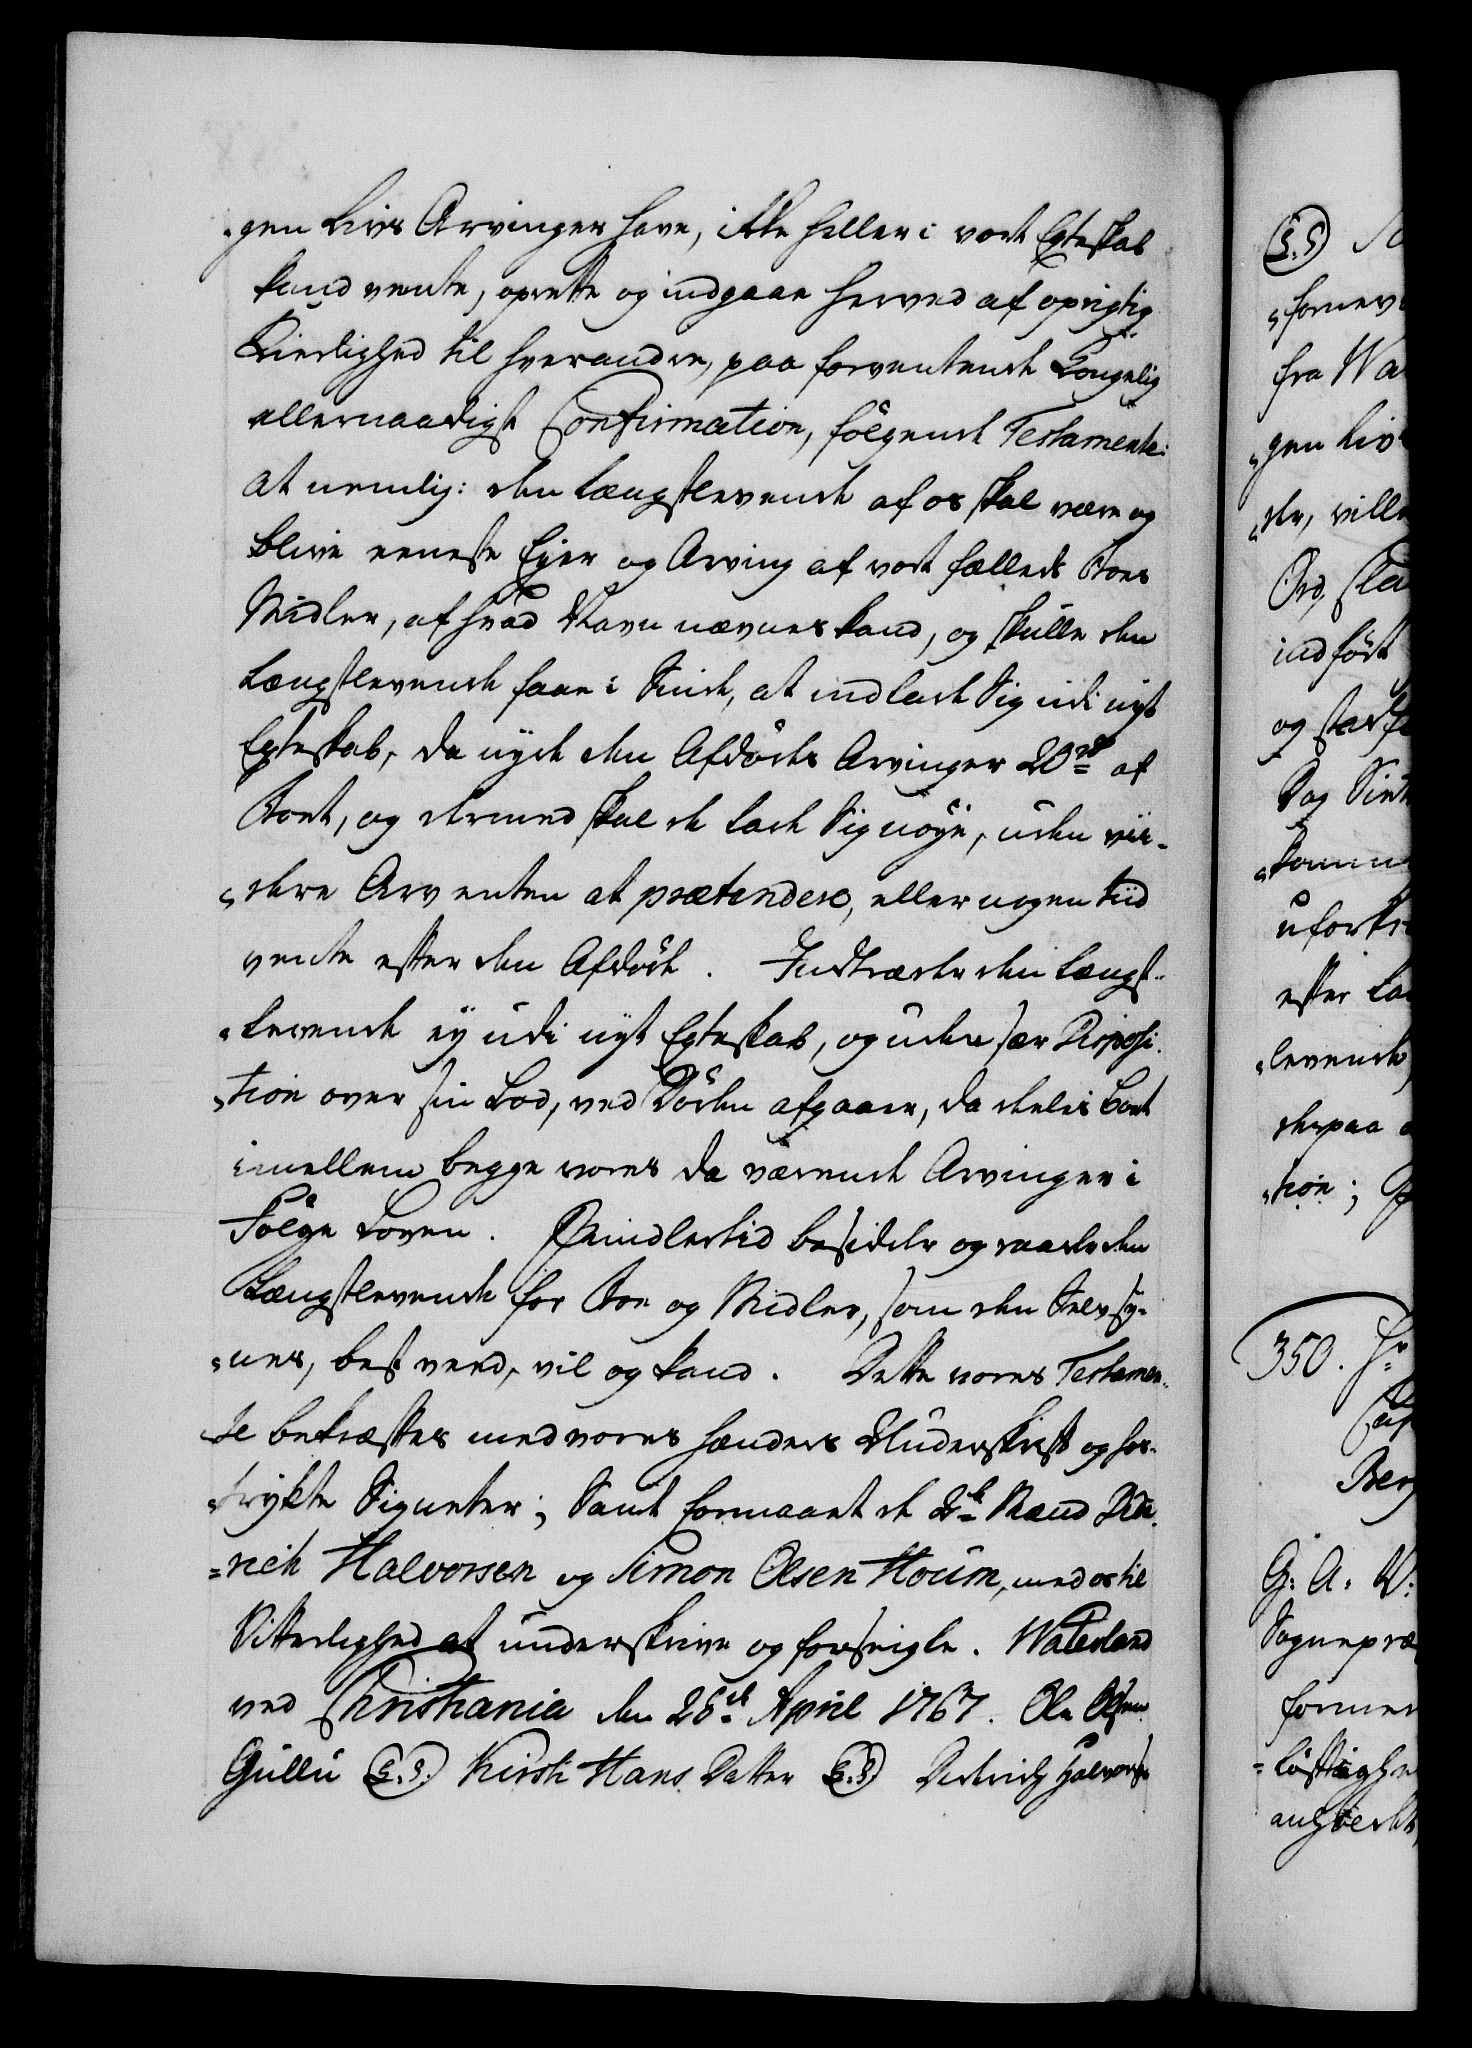 -gen Livs Arvinger have, ikke heller i vort Egteskab
kand vente, oprette og indgaae herved af oprigtig
Kierlighed til hverandre, paa forventende Kongelig
allernaadigst Confirmation, følgende Testamente:
at nemlig: den Længstlevende af os skal være og
blive eeneste Ejer og Arving af vort fælleds Boes
Midler, af hvad Navn nævnes kand, og skulle den
Længstlevende faae i Sinde, at indlade Sig udi nyt
Egteskab, da nyde den Afdødes Arvinger 20 rd af
Boet, og dermed skal de lade Sig nøye, uden vii-
-dere Arv enten at prætendere, eller nogen tiid
vente efter den Afdøde. Indtræde den Længst-
-levende ey udi nyt Egteskab, og uden sær Disposi-
-tion over sin Lod, ved Døden afgaaer, da deles Boet
imellem begge vores da værende Arvinger i
Følge Loven. Imidlertid besidder og raader den
Længstlevende for Boe og Midler, som den Selv sy-
-nes, best veed, vil og kand. Dette vores Testamen-
-te bekræftes med vores hænders Underskrift og hos-
-trykte Signeter; Samt formaaet de 2de Mænd Dide-
-rich Halvorsen og Simon Olsen Houm, med os til
Vitterlighed at underskrive og forseigle. Waterland
ved Christiania den 28de April 1767. Ole Olsen
Gullu (L.S.) Kirsti Hans Datter (L.S.) Diderich Halvors
(L.S.)
-fornev
fra Wa
-gen Liv
-de, ville
Ord,
indført
og
Dag
-komm
uforkr
efter La
-levende,
derpaa
-tion;
350. Hr
Cap
Berg
G: A: W:
Sognepræ
former